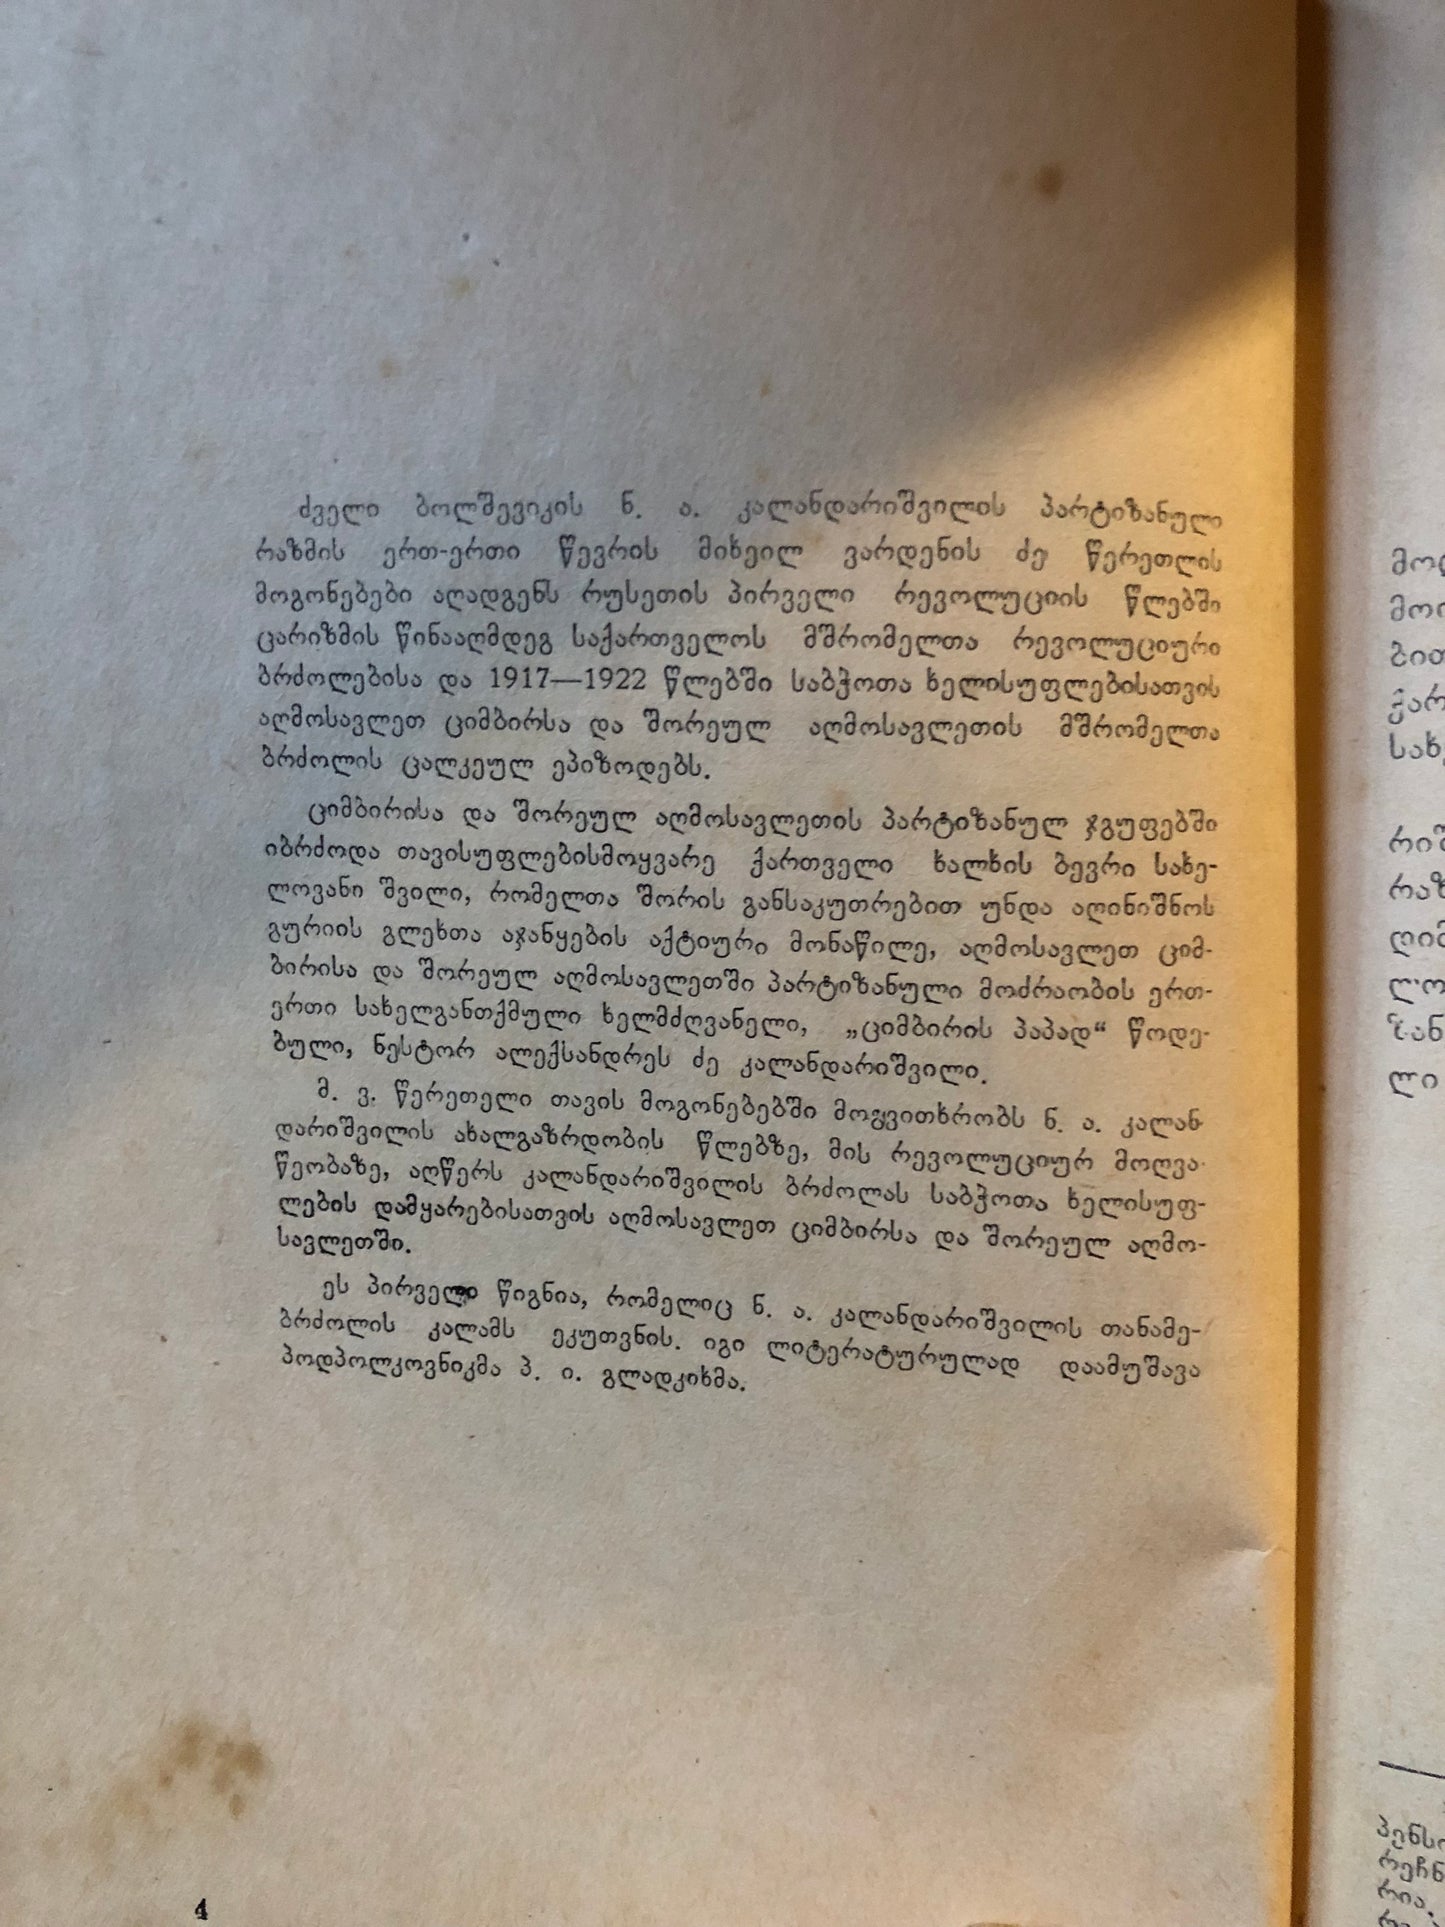 ძველი ბოლშევიკის ნ. ა. კალანდარიშვილის პარტიზანული
რაზმის ერთ-ერთი წევრის მიხეილ ვარდენის ძე წერეთლის
მოგონებები აღადგენს რუსეთის პირველი რევოლუციის წლებში
ცარიზმის წინააღმდეგ საქართველოს მშრომელთა რევოლუციური
ბრძოლებისა და 1917—1922 წლებში საბჭოთა ხელისუფლებისათვის
აღმოსავლეთ ციმბირსა და შორეულ აღმოსავლეთის მშრომელთა
ბრძოლის ცალკეულ ეპიზოდებს.
ციმბირისა და შორეულ აღმოსავლეთის პარტიზანულ ჯგუფებში
იბრძოდა თავისუფლებისმოყვარე ქართველი ხალხის ბევრი სახე-
ლოვანი შვილი, რომელთა შორის განსაკუთრებით უნდა აღინიშნოს
გურიის გლეხთა აჯანყების აქტიური მონაწილე, აღმოსავლეთ ციმ-
ბირისა და შორეულ აღმოსავლეთში პარტიზანული მოძრაობის ერთ-
ერთი სახელგანთქმული ხელმძღვანელი, „ციმბირის პაპად“ წოდე-
ბული, ნესტორ ალექსანდრეს ძე კალანდარიშვილი.
მ. ვ. წერეთელი თავის მოგონებებში მოგვითხრობს ნ. ა. კალან-
დარიშვილის ახალგაზრდობის წლებზე, მის რევოლუციურ მოღვა-
წეობაზე, აღწერს კალანდარიშვილის ბრძოლას საბჭოთა ხელისუფ-
ლების დამყარებისათვის აღმოსავლეთ ციმბირსა და შორეულ აღმო-
სავლეთში.
ეს პირველი წიგნია, რომელიც ნ. ა. კალანდარიშვილის თანამე-
ბრძოლის კალამს ეკუთვნის. იგი ლიტერატურულად დაამუშავა
პოდპოლკოვნიკმა პ. ი. გლადკიხმა.
4